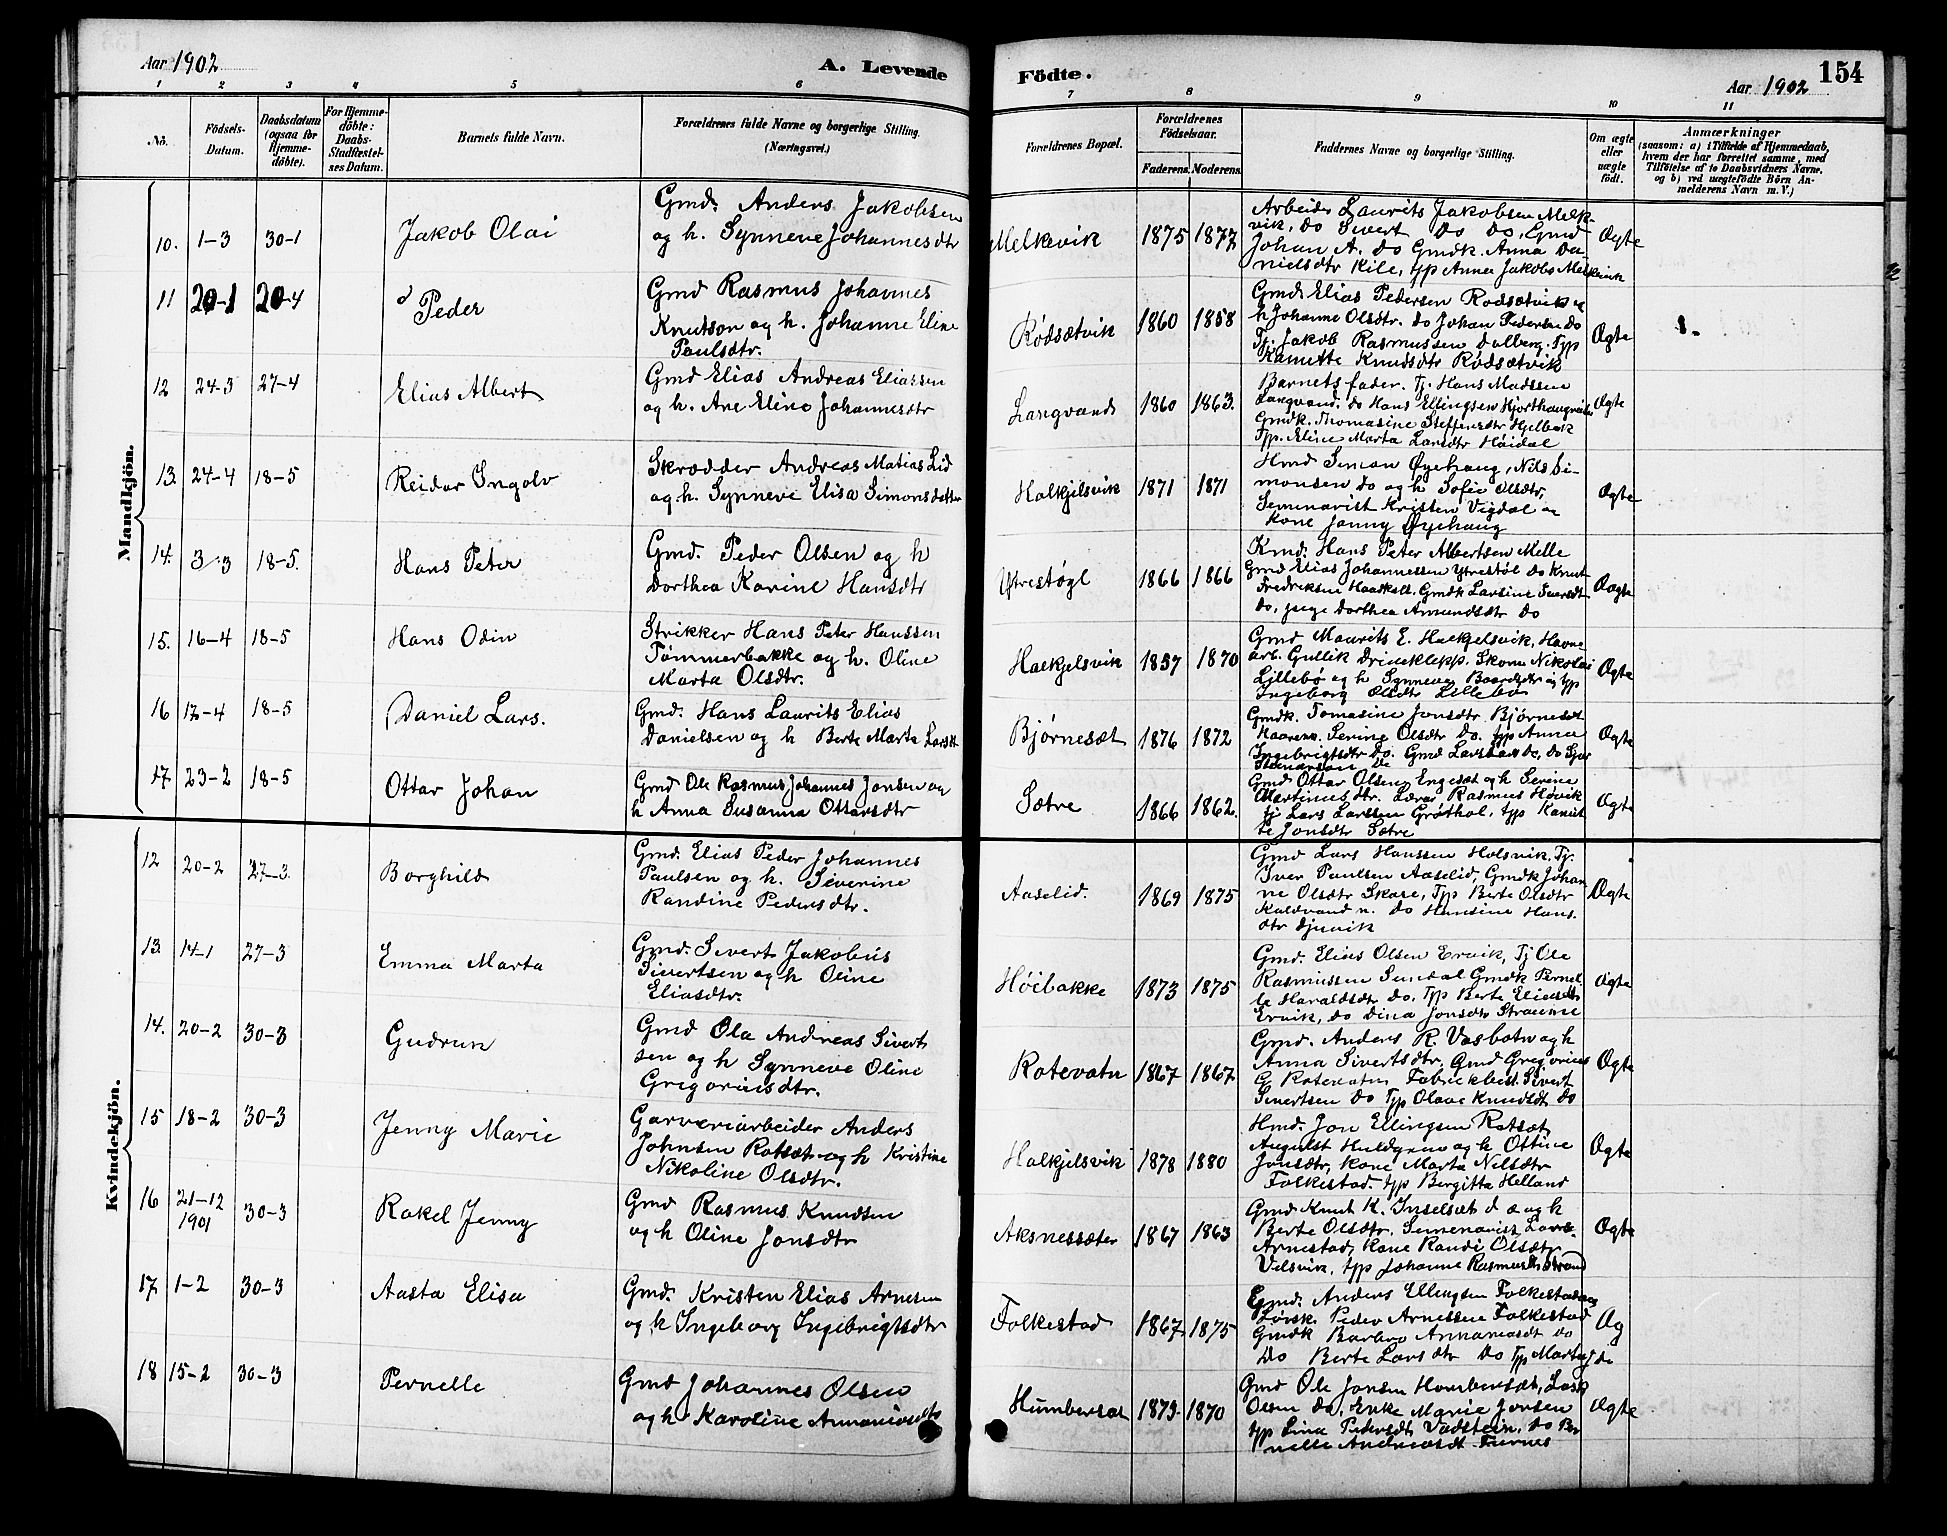 Aar 1902
A. Levende
Födte.
Aar 1902
154
1 2 3 4 5 6
7 8 9 10 11
No.
Födsels-
Datum.
Daabsdatum
(ogsaa for
Hjemme-
döbte).
For Hjemme-
döbte:
Daabs-
Stadfæstel-
ses Datum.
Barnets fulde Navn.
Forældrenes fulde Navne og borgerlige Stilling.
(Næringsvei.)
Forældrenes Bopæl.
Forældrenes
Födselsaar.
Faderens. Moderens.
Faddernes Navne og borgerlige Stilling.
Om ægte
eller
uægte
födt.
Anmærkninger
(saasom: a) i Tilfælde af Hjemmedaab,
hvem der har forrettet samme, med
Tilföielse af to Daabsvidners Navne,
og b) ved uægtefödte Börn An-
melderens Navn m. V.)
Mandkjön.
10. 1-3 30-1 Jakob Olai
Gmd. Anders Jakobsen
og h. Synneve Johannesdtr
Melkevik 1875 1877
Arbeider Laurits Jakobsen Melk-
vik, do Sivert do do, Gmd
Johan A. do Gmdk. Anna Da-
nielsdtr Kile, typ Anna Jakobs Melkevik
Ægte
11 20-1 20-4 Peder
Gmd Rasmus Johannes
Knutson og h. Johanne Eline
Paulsdtr.
Rødsætvik 1860 1858
Gmd. Elias Pedersen Rødsætvik og
h Johanne Olsdtr. do Johan Pedersen do
Tj. Jakob Rasmussen Dalberg. Typ
Kanutte Knudsdtr Rødsætvik
Ægte
12 24-3 27-4 Elias Albert
Gmd Elias Andreas Eliassen
og h. Ane Eline Johannesdtr
Langvand 1860 1863.
Barnets fader. Tj. Hans Madssen
Langvand. do Hans Ellingsen Hjorthaugvik
Gmdk. Thomasine Steffensdtr Hjelbak
Typ. Eline Marta Larsdtr Høidal
Ægte
13. 24-4 18-5 Reidar Ingolv
Skrædder Andreas Matias Lid
og h. Synneve Elisa Simonsdatter
Halkjelsvik 1871 1871
Hmd Simon Øyehaug, Nils Si-
monsen do og h Sofie Olsdtr,
Seminarist Kristen Vigdal og
Kone Janny Øyehaug
Ægte
14. 3-3 18-5. Hans Peter
Gmd. Peder Olsen og h
Dorthea Karine Hansdtr
Ytrestøyl 1866 1866
Kmd. Hans Peter Albertsen Melle
Gmd Elias Johannessen Ytrestøl do Knut
Fredriksen Haaskoll. Gmdk Larsine Iversdtr
do, pige Dorthea Amundsdtr do
Ægte
15. 16-4 18-5 Hans Odin
Strikker Hans Peter Hanssen
Tømmerbakke og h. Oline
Marta Olsdtr.
Halkjelsvik 1857 1870
Gmd Maurits E. Halkjelsvik, Havne
arb. Gullik Drineklepp. Skom Nikolai
Lillebø og h Synneve Baardsdtr og typ
Ingeborg Olsdtr Lillebø
Ægte
16 17-4 18-5 Daniel Lars.
Gmd. Hans Laurits Elias
Danielsen og h Berte Marta Larsdt
Bjørnesæt 1876 1872
Gmdk. Tomasine Jonsdtr Bjørnesæt
Serine Olsdtr do. typ Anna
Ingebrigtsdtr do. Gmd Lars
Ægte
17 23-2 18-5 Ottar Johan
Gmd Ole Rasmus Johannes Jonsen og
h Anna Susanna Ottarsdtr
Sætre 1866 1862.
Gmd Ottar Olsen Engesæt og h Serine
Martinusdtr. Lærer Rasmus Høvik
tj Lars Larssen Grøthol, typ Kanut
te Jonsdtr Sætre
Ægte
Kvindekjön.
12 20-2 27-3. Borghild
Gmd. Elias Peder Johannes
Paulsen og h. Siverine
Randine Pedersdtr.
Aaselid. 1869 1875
Gmd Lars Hanssen Halsvik. Tj.
Iver Paulsen Aaselid, Gmdk Johan
ne Olsdtr Skare, Typ Berte Olsdtr
Kaldvand n. do Hansine Hans-
dtr Djuvvik
Ægte
13. 14-1 27-3 Emma Marta
Gmd. Sivert Jakobus
Sivertsen og h Oline
Eliasdtr.
Høibakke 1873 1875
Gmd. Elias Olsen Ervik, Tj Ole
Rasmussen Sundal Gmdk Pernel
le Haraldsdtr do, Typ Berte Eliasdtr
Ervik, do Dina Jonsdtr Straume
Ægte
14. 20-2 30-3 Gudrun
Gmd Ola Andreas Sivert
sen og h Synneve Oline
Gregoriusdtr.
Rotevatn 1867 1867
Gmd. Anders R. Vasbotn og h
Anna Sivertsdtr, Gmd Gregorius
G Rotevatn Fabrikbest. Sivert
Sivertsen do Typ Olave Knudsdt do
Ægte
15 18-2 30-3 Jenny Marie
Garveriarbeider Anders
Johnsen Rotsæt og h Kristine
Nikoline Olsdtr.
Halkjelsvik 1878 1880
Hmd. Jon Ellingsen Rotsæt
August Huldgren og h Ottine
Jonsdtr, Kone Marta Nilsdtr
Folkestad. typ Bergitta Helland
Ægte
16 21-12
1901 30-3 Rakel Jenny
Gmd Rasmus Knudsen
og h Oline Jonsdtr
Aksnessæter 1867 1863
Gmd Knut K. Inselsæt d æ og h
Berte Olsdtr. Semenarist Lars
Arnestad, Kone Randi Olsdtr
Velsvik, typ Johanne Rasmusdt Strand
Ægte
17 1-2 30-3 Aasta Elisa
Gmd. Kristen Elias Arnesen
og h Ingeborg Ingebrigtsdtr
Folkestad 1867 1875
Gmd. Anders Ellingsen Folkestad og
Lørsk. Peder Arnessen Folkestad
Gmdk Barbro Annaniasdt do
Do Berte Larsdtr do Typ Marta J do
Æg
18 15-2 30-3 Pernelle
Gmd Johannes Olsen
og h Karoline Annaniasdtr
Humbersæt 1873. 1870
Gmd Ole Jonsen Humbersæt, Lars
Olsen do, Enke Marie Jonsen
typ Lina Pedersdt Vadstein, do Per
nelle Andreasdt Furnes
Ægte